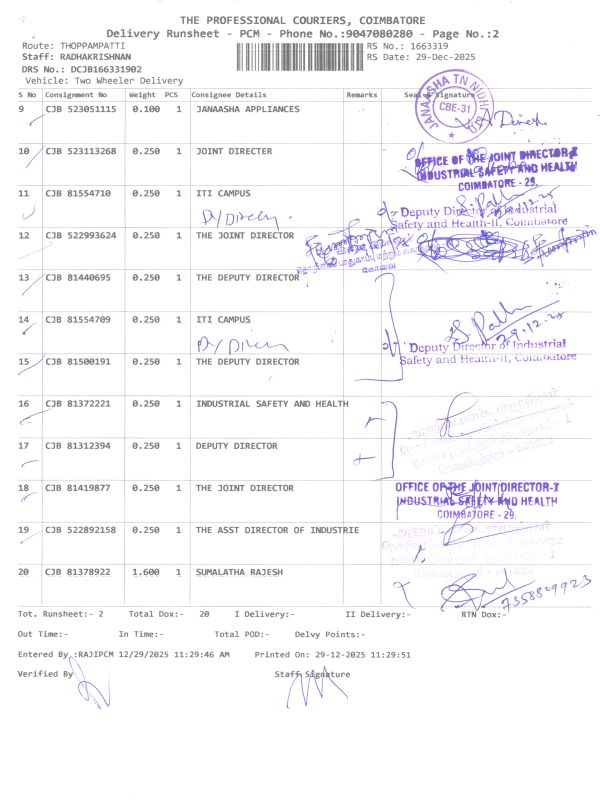 THE PROFESSIONAL COURIERS, COIMBATORE
Delivery Runsheet - PCM - Phone No.:9047080280 - Page No.:2
Route: THOPPAMPATTI RS No.: 1663319
Staff: RADHAKRISHNAN RS Date: 29-Dec-2025
DRS No.: DCJB166331902
Vehicle: Two Wheeler Delivery
S No Consignment No Weight PCS Consignee Details Remarks Seal & Signature
9 CJB 523051115 0.100 1 JANAASHA APPLIANCES
JANAASHA TN NIDHI
CBE-31
10 CJB 523113268 0.250 1 JOINT DIRECTER
OFFICE OF THE JOINT DIRECTOR-I
INDUSTRIAL SAFETY AND HEALTH
COIMBATORE - 29.
11 CJB 81554710 0.250 1 ITI CAMPUS
Deputy Director of Industrial
Safety and Health-II, Coimbatore
12 CJB 522993624 0.250 1 THE JOINT DIRECTOR
13 CJB 81440695 0.250 1 THE DEPUTY DIRECTOR
14 CJB 81554709 0.250 1 ITI CAMPUS
29.12.25
Deputy Director of Industrial
Safety and Health-II, Coimbatore
15 CJB 81500191 0.250 1 THE DEPUTY DIRECTOR
16 CJB 81372221 0.250 1 INDUSTRIAL SAFETY AND HEALTH
17 CJB 81312394 0.250 1 DEPUTY DIRECTOR
18 CJB 81419877 0.250 1 THE JOINT DIRECTOR
OFFICE OF THE JOINT DIRECTOR-I
INDUSTRIAL SAFETY AND HEALTH
COIMBATORE - 29.
19 CJB 522892158 0.250 1 THE ASST DIRECTOR OF INDUSTRIE
20 CJB 81378922 1.600 1 SUMALATHA RAJESH
7358809923
Tot. Runsheet:- 2 Total Dox:- 20 I Delivery:- II Delivery:- RTN Dox:-
Out Time:- In Time:- Total POD:- Delvy Points:-
Entered By :RAJIPCM 12/29/2025 11:29:46 AM Printed On: 29-12-2025 11:29:51
Verified By Staff Signature